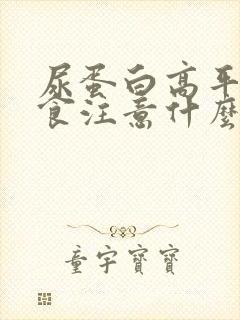 尿蛋白高平
食注意什麼
童宇寶寶